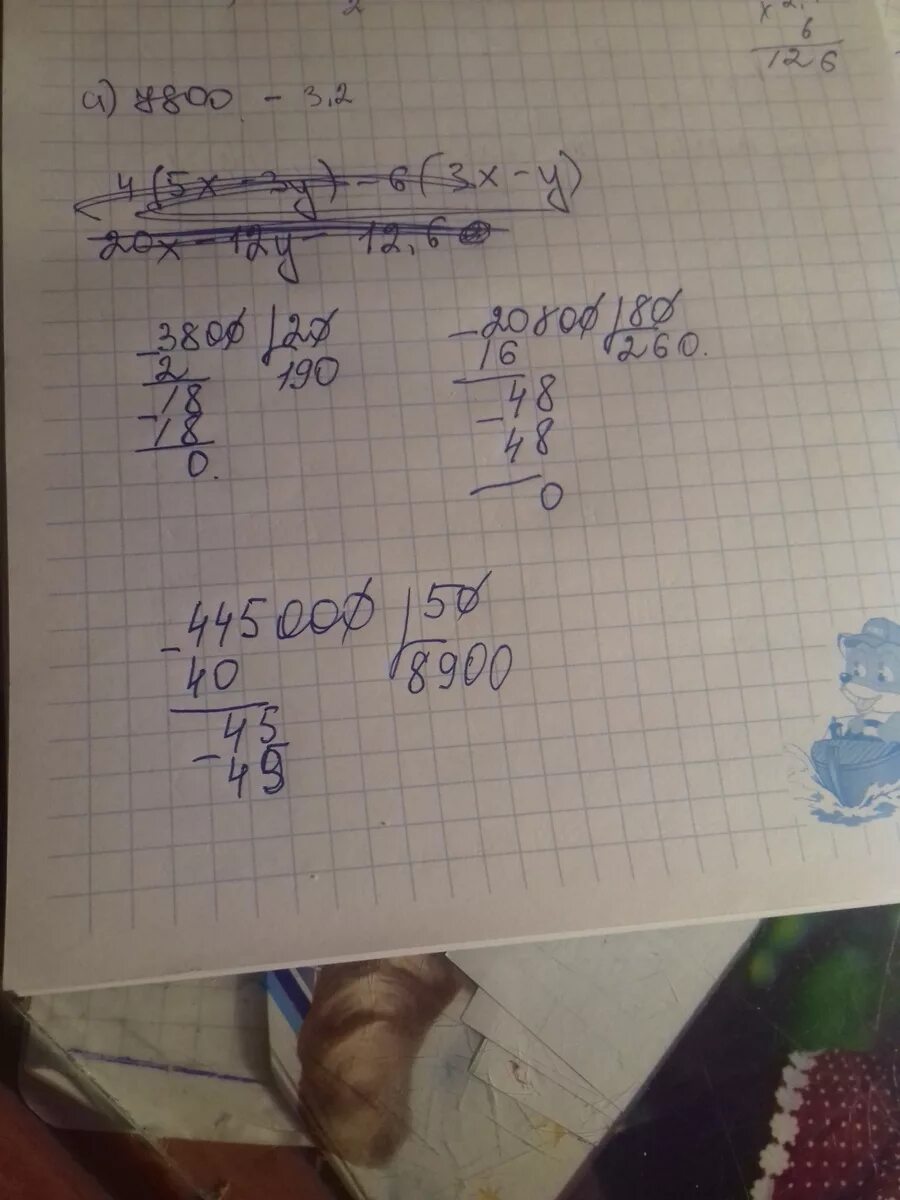 2
6
126
а) 7800 - 3,2
4(5x - 3y) - 6(3x - y)
20x - 12y - 12,6
-3800 |20
2 190
18
-18
0.
-20800 |80
16 260.
48
-48
0
-445000 |50
40 8900
45
-45